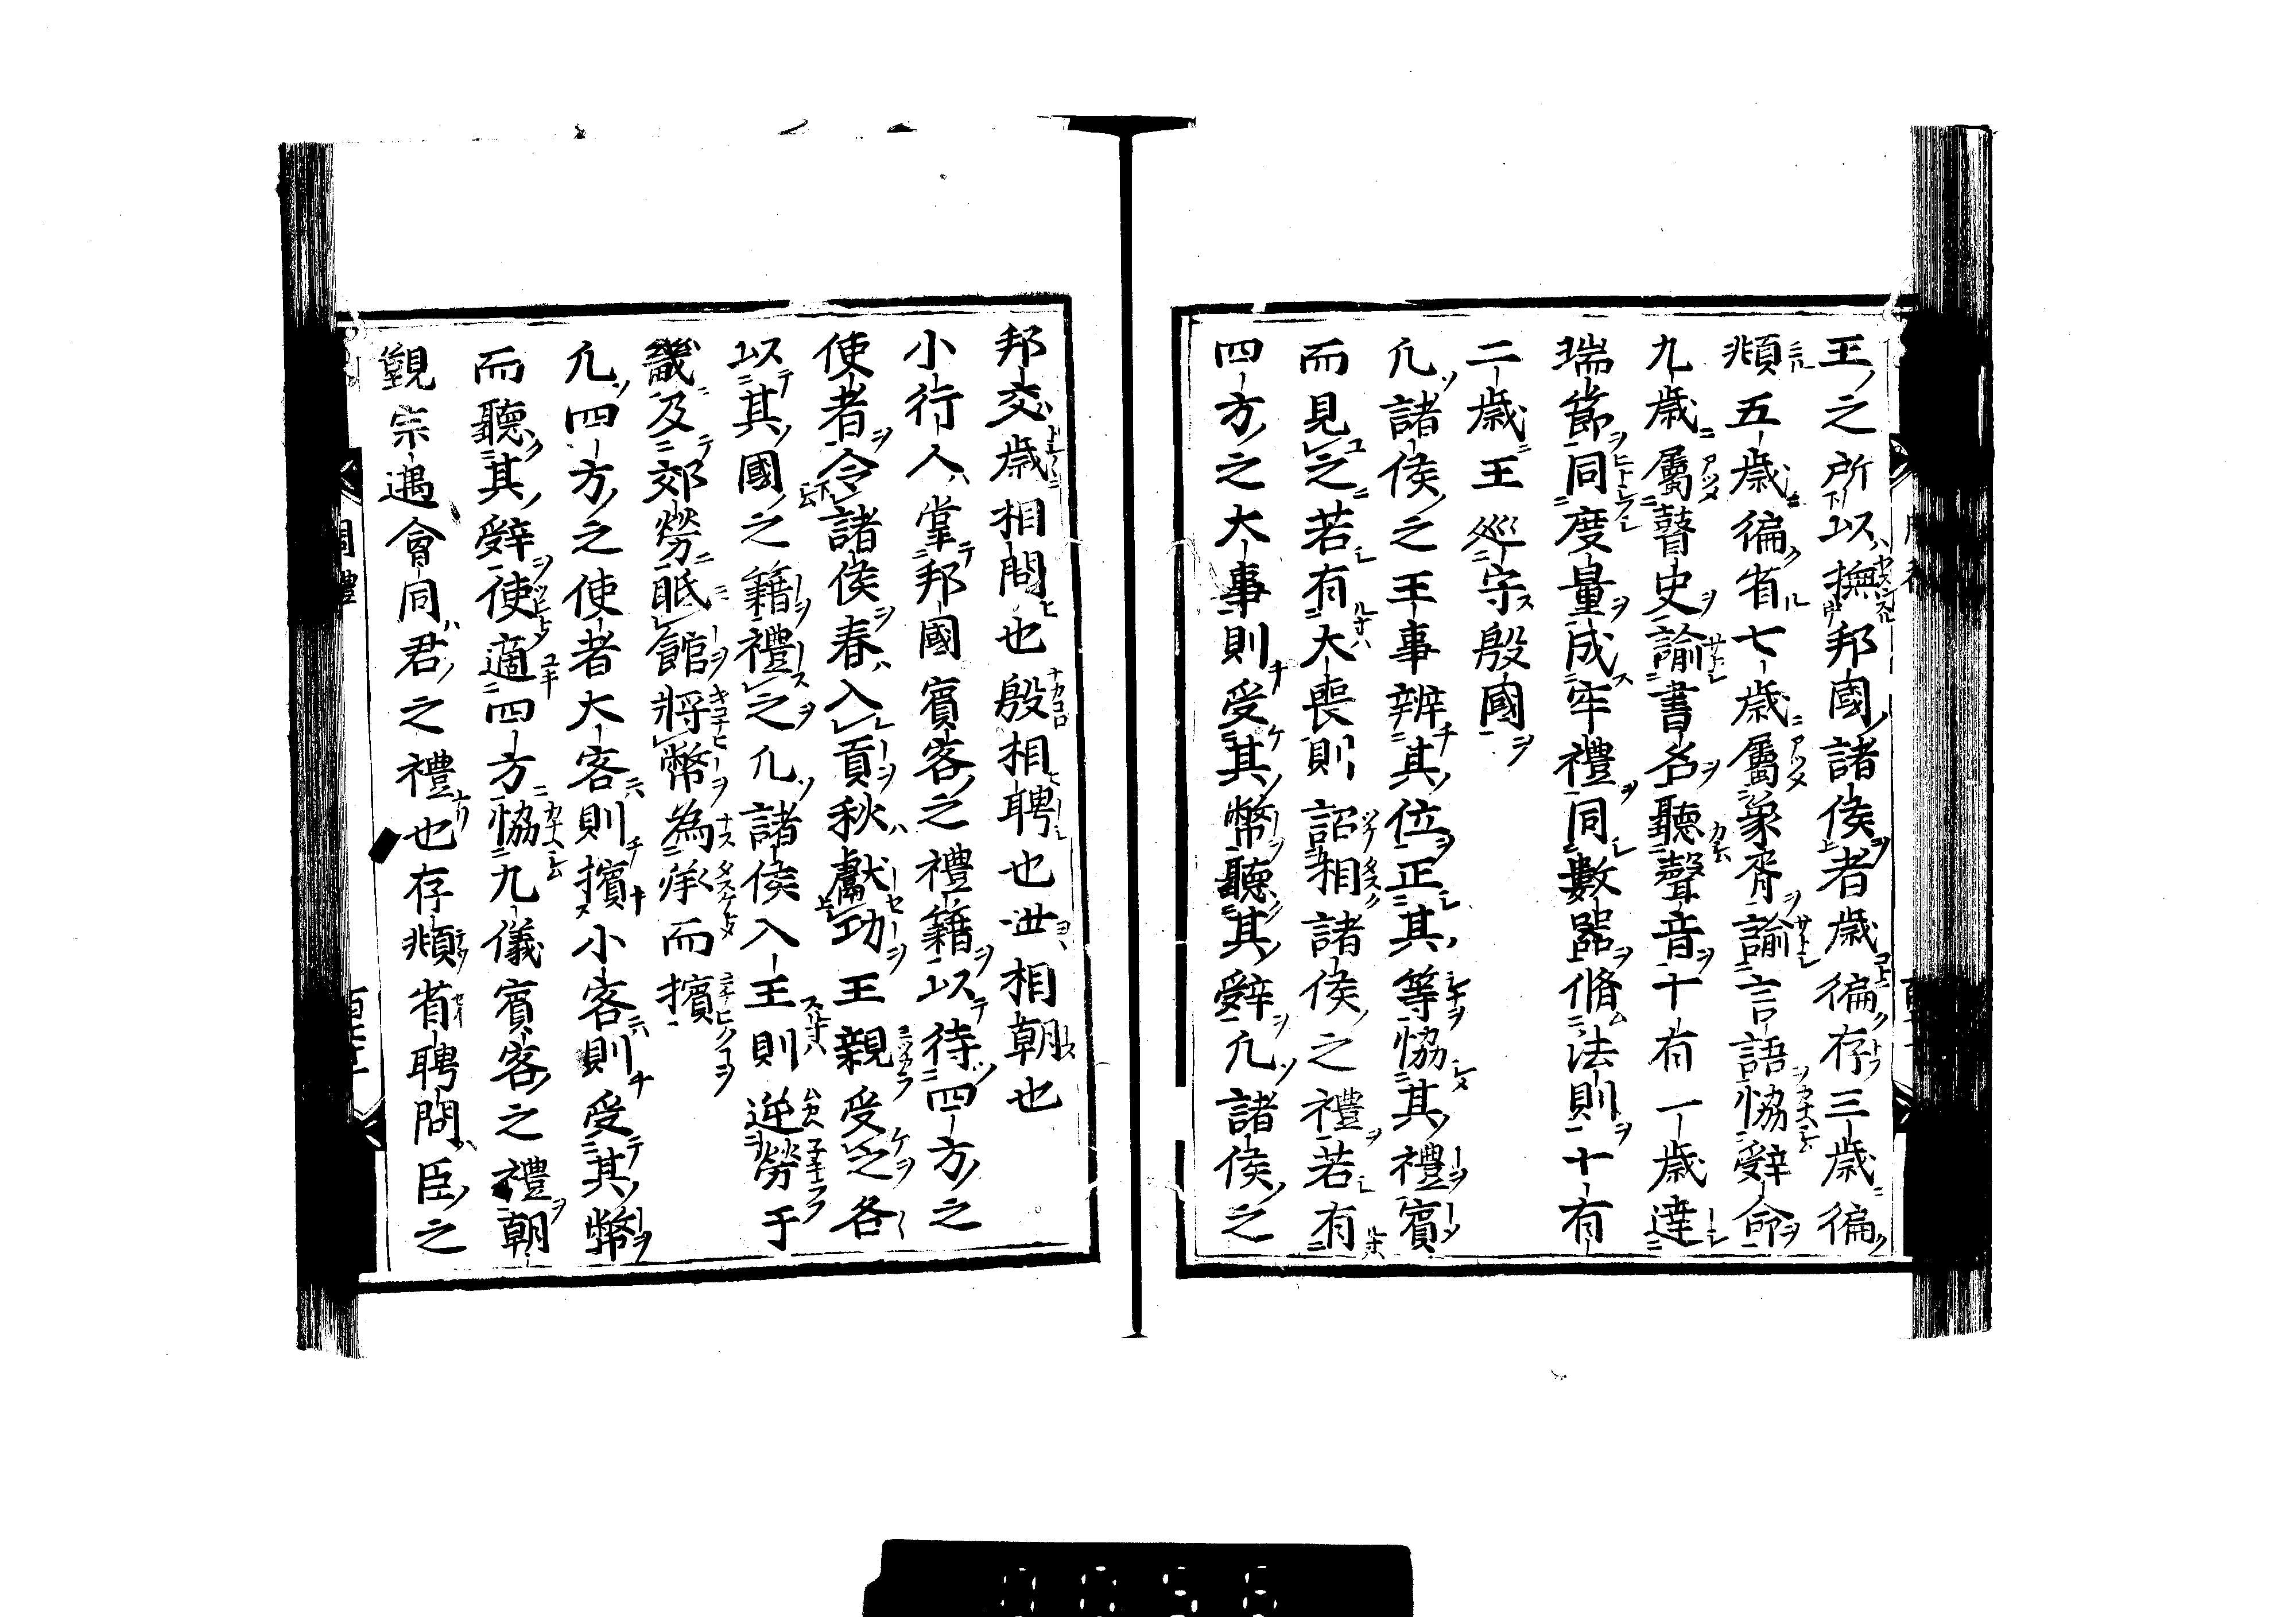 王之所以撫邦國諸侯者歲徧存三歲徧
頫五歲徧省七歲屬象胥諭言語協辭命
九歲屬瞽史諭書名聽聲音十有一歲達
瑞節同度量成牢禮同數器脩法則十有
二歲王巡守殷國
凡諸侯之王事辨其位正其等協其禮賓
而見之若有大喪則詔相諸侯之禮若有
四方之大事則受其幣聽其辭凡諸侯之
邦交歲相問也殷相聘也世相朝也
小行人掌邦國賓客之禮籍以待四方之
使者令諸侯春入貢秋獻功王親受之各
以其國之籍禮之凡諸侯入王則逆勞于
畿及郊勞眂館將幣為承而擯
凡四方之使者大客則擯小客則受其幣
而聽其辭使適四方協九儀賓客之禮朝
覲宗遇會同君之禮也存頫省聘問臣之
周禮